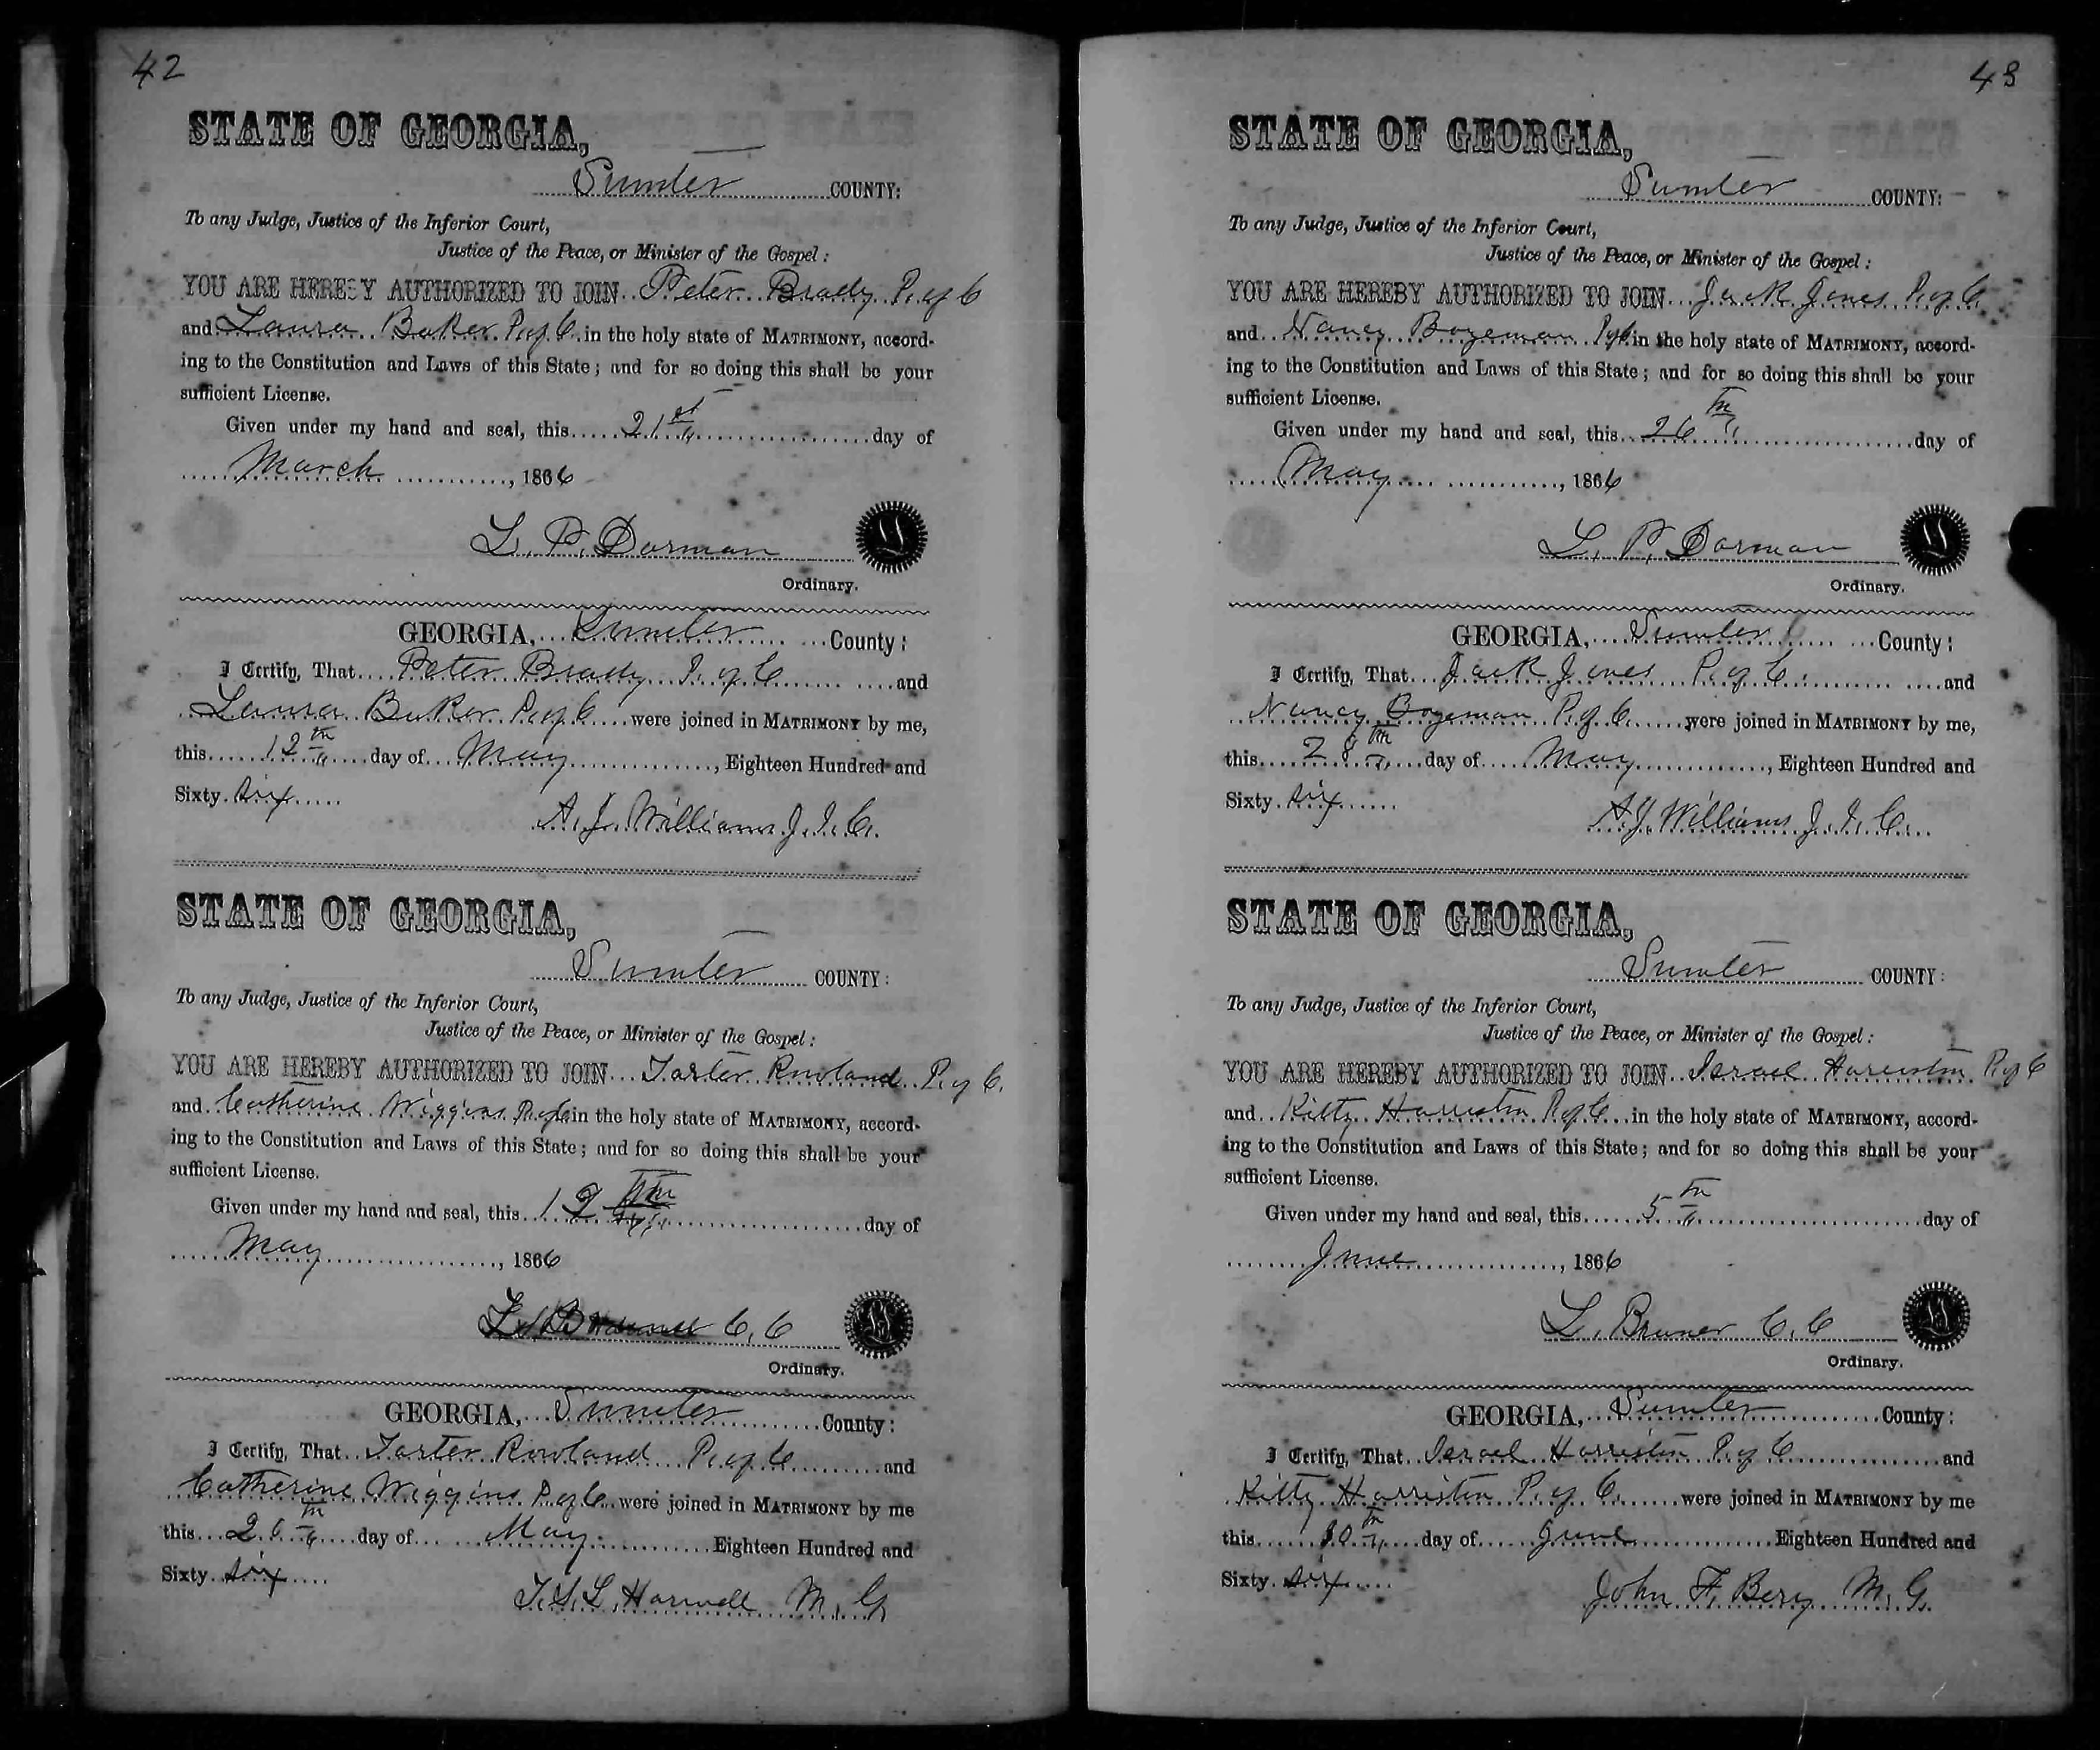 42
STATE OF GEORGIA,
Sumter COUNTY:
To any Judge, Justice of the Inferior Court,
Justice of the Peace, or Minister of the Gospel:
YOU ARE HEREBY AUTHORIZED TO JOIN Peter Brady P. of C
and Laura Baker P. of C. in the holy state of MATRIMONY, accord-
ing to the Constitution and Laws of this State; and for so doing this shall be your
sufficient License.
Given under my hand and seal, this 21st day of
March, 1866
L. P. Dorman
Ordinary.
GEORGIA, Sumter County:
I Certify, That Peter Brady P. of C and
Laura Baker P. of C were joined in MATRIMONY by me,
this 12th day of May, Eighteen Hundred and
Sixty six
A. J. Williams J. I. C.
STATE OF GEORGIA,
Sumter COUNTY:
To any Judge, Justice of the Inferior Court,
Justice of the Peace, or Minister of the Gospel:
YOU ARE HEREBY AUTHORIZED TO JOIN Tarter Rowland P. of C.
and Catherine Wiggins P. of C in the holy state of MATRIMONY, accord-
ing to the Constitution and Laws of this State; and for so doing this shall be your
sufficient License.
Given under my hand and seal, this 19 day of
May, 1866
C. C
Ordinary.
GEORGIA, Sumter County:
I Certify, That Tarter Rowland P. of C and
Catherine Wiggins P. of C. were joined in MATRIMONY by me
this day of May Eighteen Hundred and
Sixty six
T. S. L. Harwell M. G
43
STATE OF GEORGIA,
Sumter COUNTY:
To any Judge, Justice of the Inferior Court,
Justice of the Peace, or Minister of the Gospel:
YOU ARE HEREBY AUTHORIZED TO JOIN Jack Jones P. of C.
and Nancy Bozeman P of C in the holy state of MATRIMONY, accord-
ing to the Constitution and Laws of this State; and for so doing this shall be your
sufficient License.
Given under my hand and seal, this 26th day of
May, 1866
L. P. Dorman
Ordinary.
GEORGIA, Sumter County:
I Certify, That Jack Jones P. of C. and
Nancy Bozeman P. of C. were joined in MATRIMONY by me,
this 28th day of May, Eighteen Hundred and
Sixty six
A. J. Williams J. I. C.
STATE OF GEORGIA,
Sumter COUNTY:
To any Judge, Justice of the Inferior Court,
Justice of the Peace, or Minister of the Gospel:
YOU ARE HEREBY AUTHORIZED TO JOIN Israel Harriston P. of C
and Kitty Harriston P. of C. in the holy state of MATRIMONY, accord-
ing to the Constitution and Laws of this State; and for so doing this shall be your
sufficient License.
Given under my hand and seal, this 5th day of
June, 1866
L. Bruner C. C
Ordinary.
GEORGIA, Sumter County:
I Certify, That Israel Harriston P. of C and
Kitty Harriston P. of C. were joined in MATRIMONY by me
this 10th day of June Eighteen Hundred and
Sixty six
John F. Bery M. G.